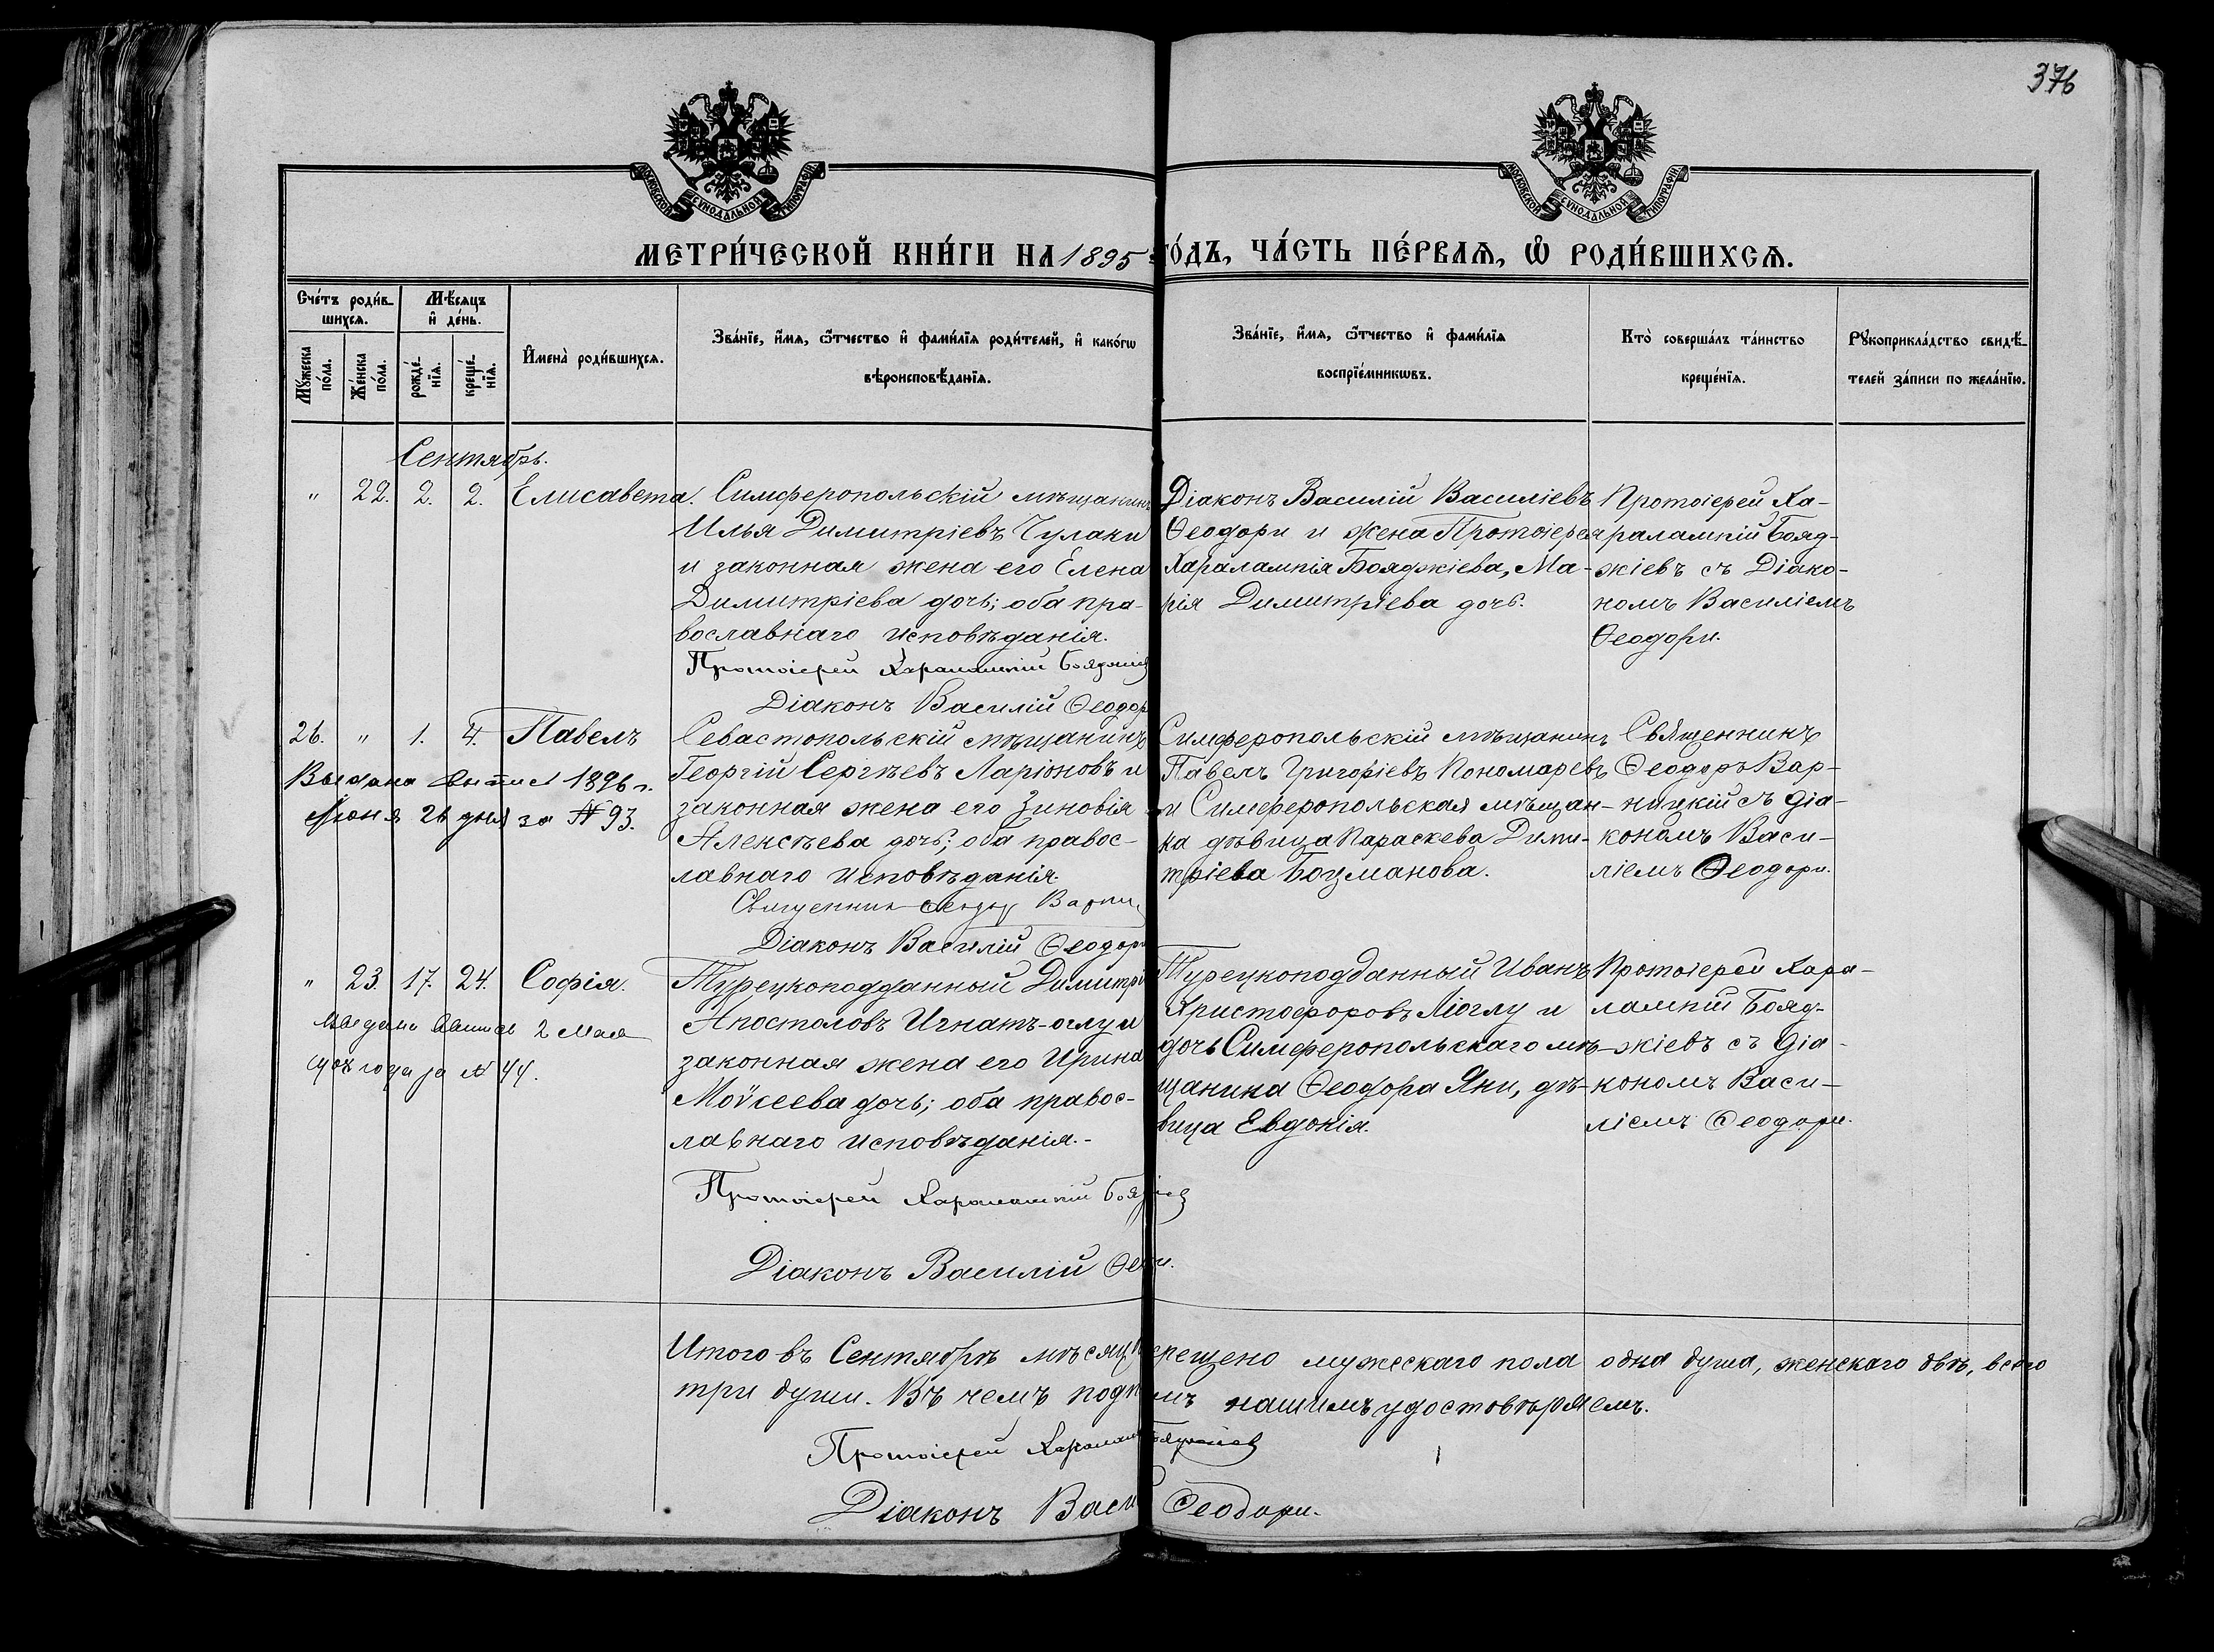 376
МОСКОВСКОЙ СѴНОДАЛЬНОЙ ТИПОГРАФІИ
МОСКОВСКОЙ СѴНОДАЛЬНОЙ ТИПОГРАФІИ
МЕТРИ́ЧЕСКОЙ КНИ́ГИ НА 1895 ГО́ДЪ, ЧА́СТЬ ПЕ́РВАѦ, Ѽ РОДИ́ВШИХСѦ.
Сче́тъ роди́в-
шихсѧ.
Мѣ́сѧцъ
и҆ де́нь.
Мꙋ́жеска
по́ла.
Же́нска
по́ла.
рожде́-
нїѧ.
креще́-
нїѧ.
И҆мена̀ роди́вшихсѧ.
Зва́нїе, и҆́мѧ, ѻ҆́тчество и҆ фами́лїѧ роди́телей, и҆ како́гѡ
вѣроисповѣ́данїѧ.
Зва́нїе, и҆́мѧ, ѻ҆́тчество и҆ фами́лїѧ
воспрїе́мникѡвъ.
Кто̀ соверша́лъ та́инство
креще́нїѧ.
Рꙋкоприкла́дство свидѣ́-
телей за́писи по жела́нїю.
Сентябрь.
" 22. 2. 2. Елисавета.
Симферопольскій мѣщанинъ
Илья Димитріевъ Чулаки
и законная жена его Елена
Димитріева дочь; оба пра-
вославнаго исповѣданія.
Протоіерей Харалампій Бояджіев
Діаконъ Василій Ѳеодор
Діаконъ Василій Василіевъ
Ѳеодори и жена Протоіерея
Харалампія Бояджіева, Ма-
рія Димитріева дочь.
Протоіерей Ха-
ралампій Бояд-
жіевъ съ Діако-
номъ Василіемъ
Ѳеодори.
26. " 1. 4. Павелъ
Выдана выпись 1896 г.
Іюня 26 дня за № 93.
Севастопольскій мѣщанинъ
Георгій Сергѣевъ Ларіоновъ и
законная жена его Зиновія
Алексѣева дочь; оба правос-
лавнаго исповѣданія.
Священник Ѳеодор Варни
Діаконъ Василій Ѳеодори
Симферопольскій мѣщанинъ
Павелъ Григоріевъ Пономаревъ
и Симферопольская мѣщан-
ка дѣвица Параскева Дими-
тріева Боцманова.
Священникъ
Ѳеодоръ Вар-
ницкій съ діа-
кономъ Васи-
ліемъ Ѳеодори.
" 23. 17. 24. Софія.
Выдана выпись 2 Мая
года за № 44.
Турецкоподданный Димитрі
Апостоловъ Игнатъ-оглу и
законная жена его Ирина
Моѵсеева дочь; оба правос-
лавнаго исповѣданія.-
Протоіерей Харалампій Бояджіев
Діаконъ Василій Ѳеодори.
Турецкоподданный Иванъ
Христофоровъ и
дочь Симферопольскаго мѣ-
щанина Ѳеодора Яни, дѣ-
вица Евдокія.
Протоіерей Хара-
лампій Бояд-
жіевъ съ діа-
кономъ Васи-
ліемъ Ѳеодори.
Итого въ Сентябрѣ мѣсяцѣ крещено мужескаго пола одна душа, женскаго двѣ, всего
три души. Въ чемъ подписомъ нашимъ удостовѣряемъ.
Протоіерей Харалампій Бояджіев
Діаконъ Васи Ѳеодори.